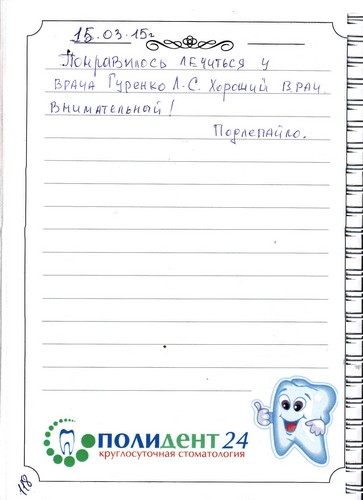 15.03.15г
Понравилось лечиться у
врача Гуренко Л.С. Хороший врач.
Внимательный!
Подлепайло.
ПОЛИДЕНТ 24
круглосуточная стоматология
118